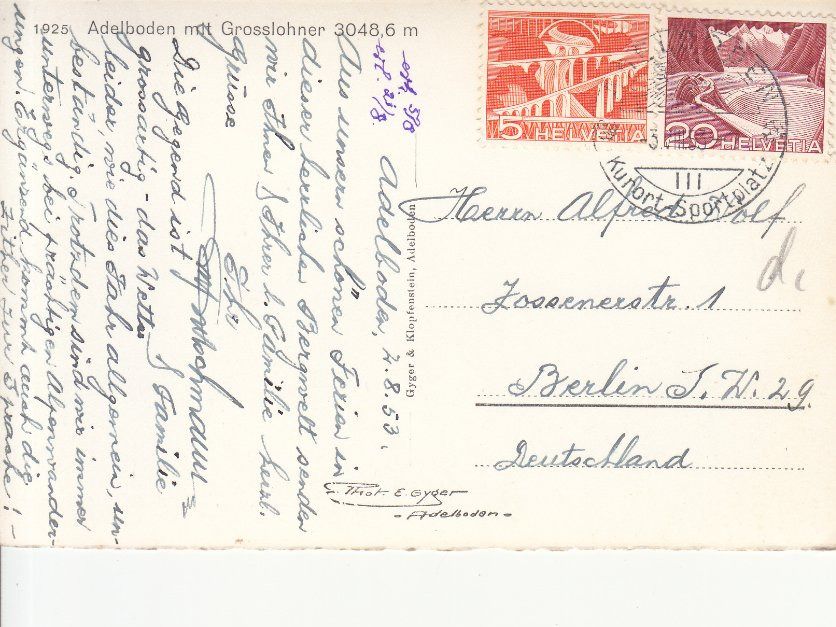 1925 Adelboden mit Grosslohner 3048,6 m
Adelboden, 2.8.53.
Aus unsern schönen Ferien in
dieser herrlichen Bergwelt senden
wir Ihnen & Ihrer l. Familie herzl.
Grüsse
Ihr
& Familie
Die Gegend ist
grossartig - das Wetter
leider, wie dies Jahr allgemein, un-
beständig. Trotzdem sind wir immer
unterwegs bei prächtigen Alpenwander-
ungen. Ergänzend kommt auch die
Zither zur Sprache! -
erh. 5/8
Gyger & Klopfenstein, Adelboden
5 HELVETIA
20 HELVETIA
III
Kurort Sportplatz
Herrn Alfred Wolf
Zossenerstr. 1
Berlin S.W. 29.
Deutschland
Phot. E. Gyger
- Adelboden -